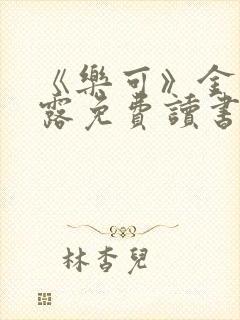 《樂可》金
露免費讀書
林杏兒